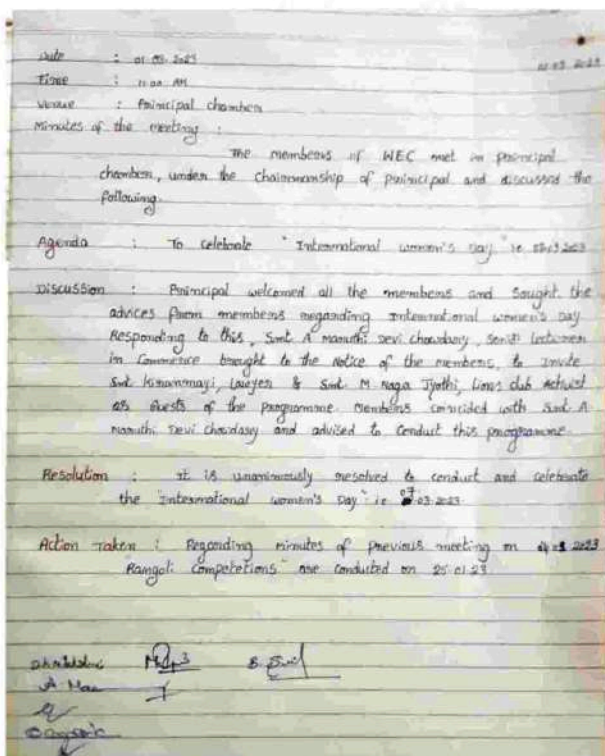 Date : 01.03.2023
01.03.2023
Time : 11.00 AM
Venue : Principal chamber
Minutes of the meeting :
The members of WEC met in principal
chamber, under the Chairmanship of principal and discussed the
following.
Agenda : To celebrate "International women's day" ie 2023
Discussion : Principal welcomed all the members and sought the
advices from members regarding International women's day
Responding to this, Smt A maruthi Devi chowdary, senior lecturer
in Commerce brought to the notice of the members, to invite
Smt Kiranmayi, Lawyer & Smt M Naga Jyothi, Lions club Activist
as Guests of the programme. Members coincided with Smt A
maruthi Devi chowdary and advised to conduct this programme.
Resolution : It is unanimously resolved to conduct and celebrate
the "International women's Day" ie 07.03.2023.
Action Taken : Regarding minutes of previous meeting on 2023
Rangoli Competetions" are conducted on 25.01.23.